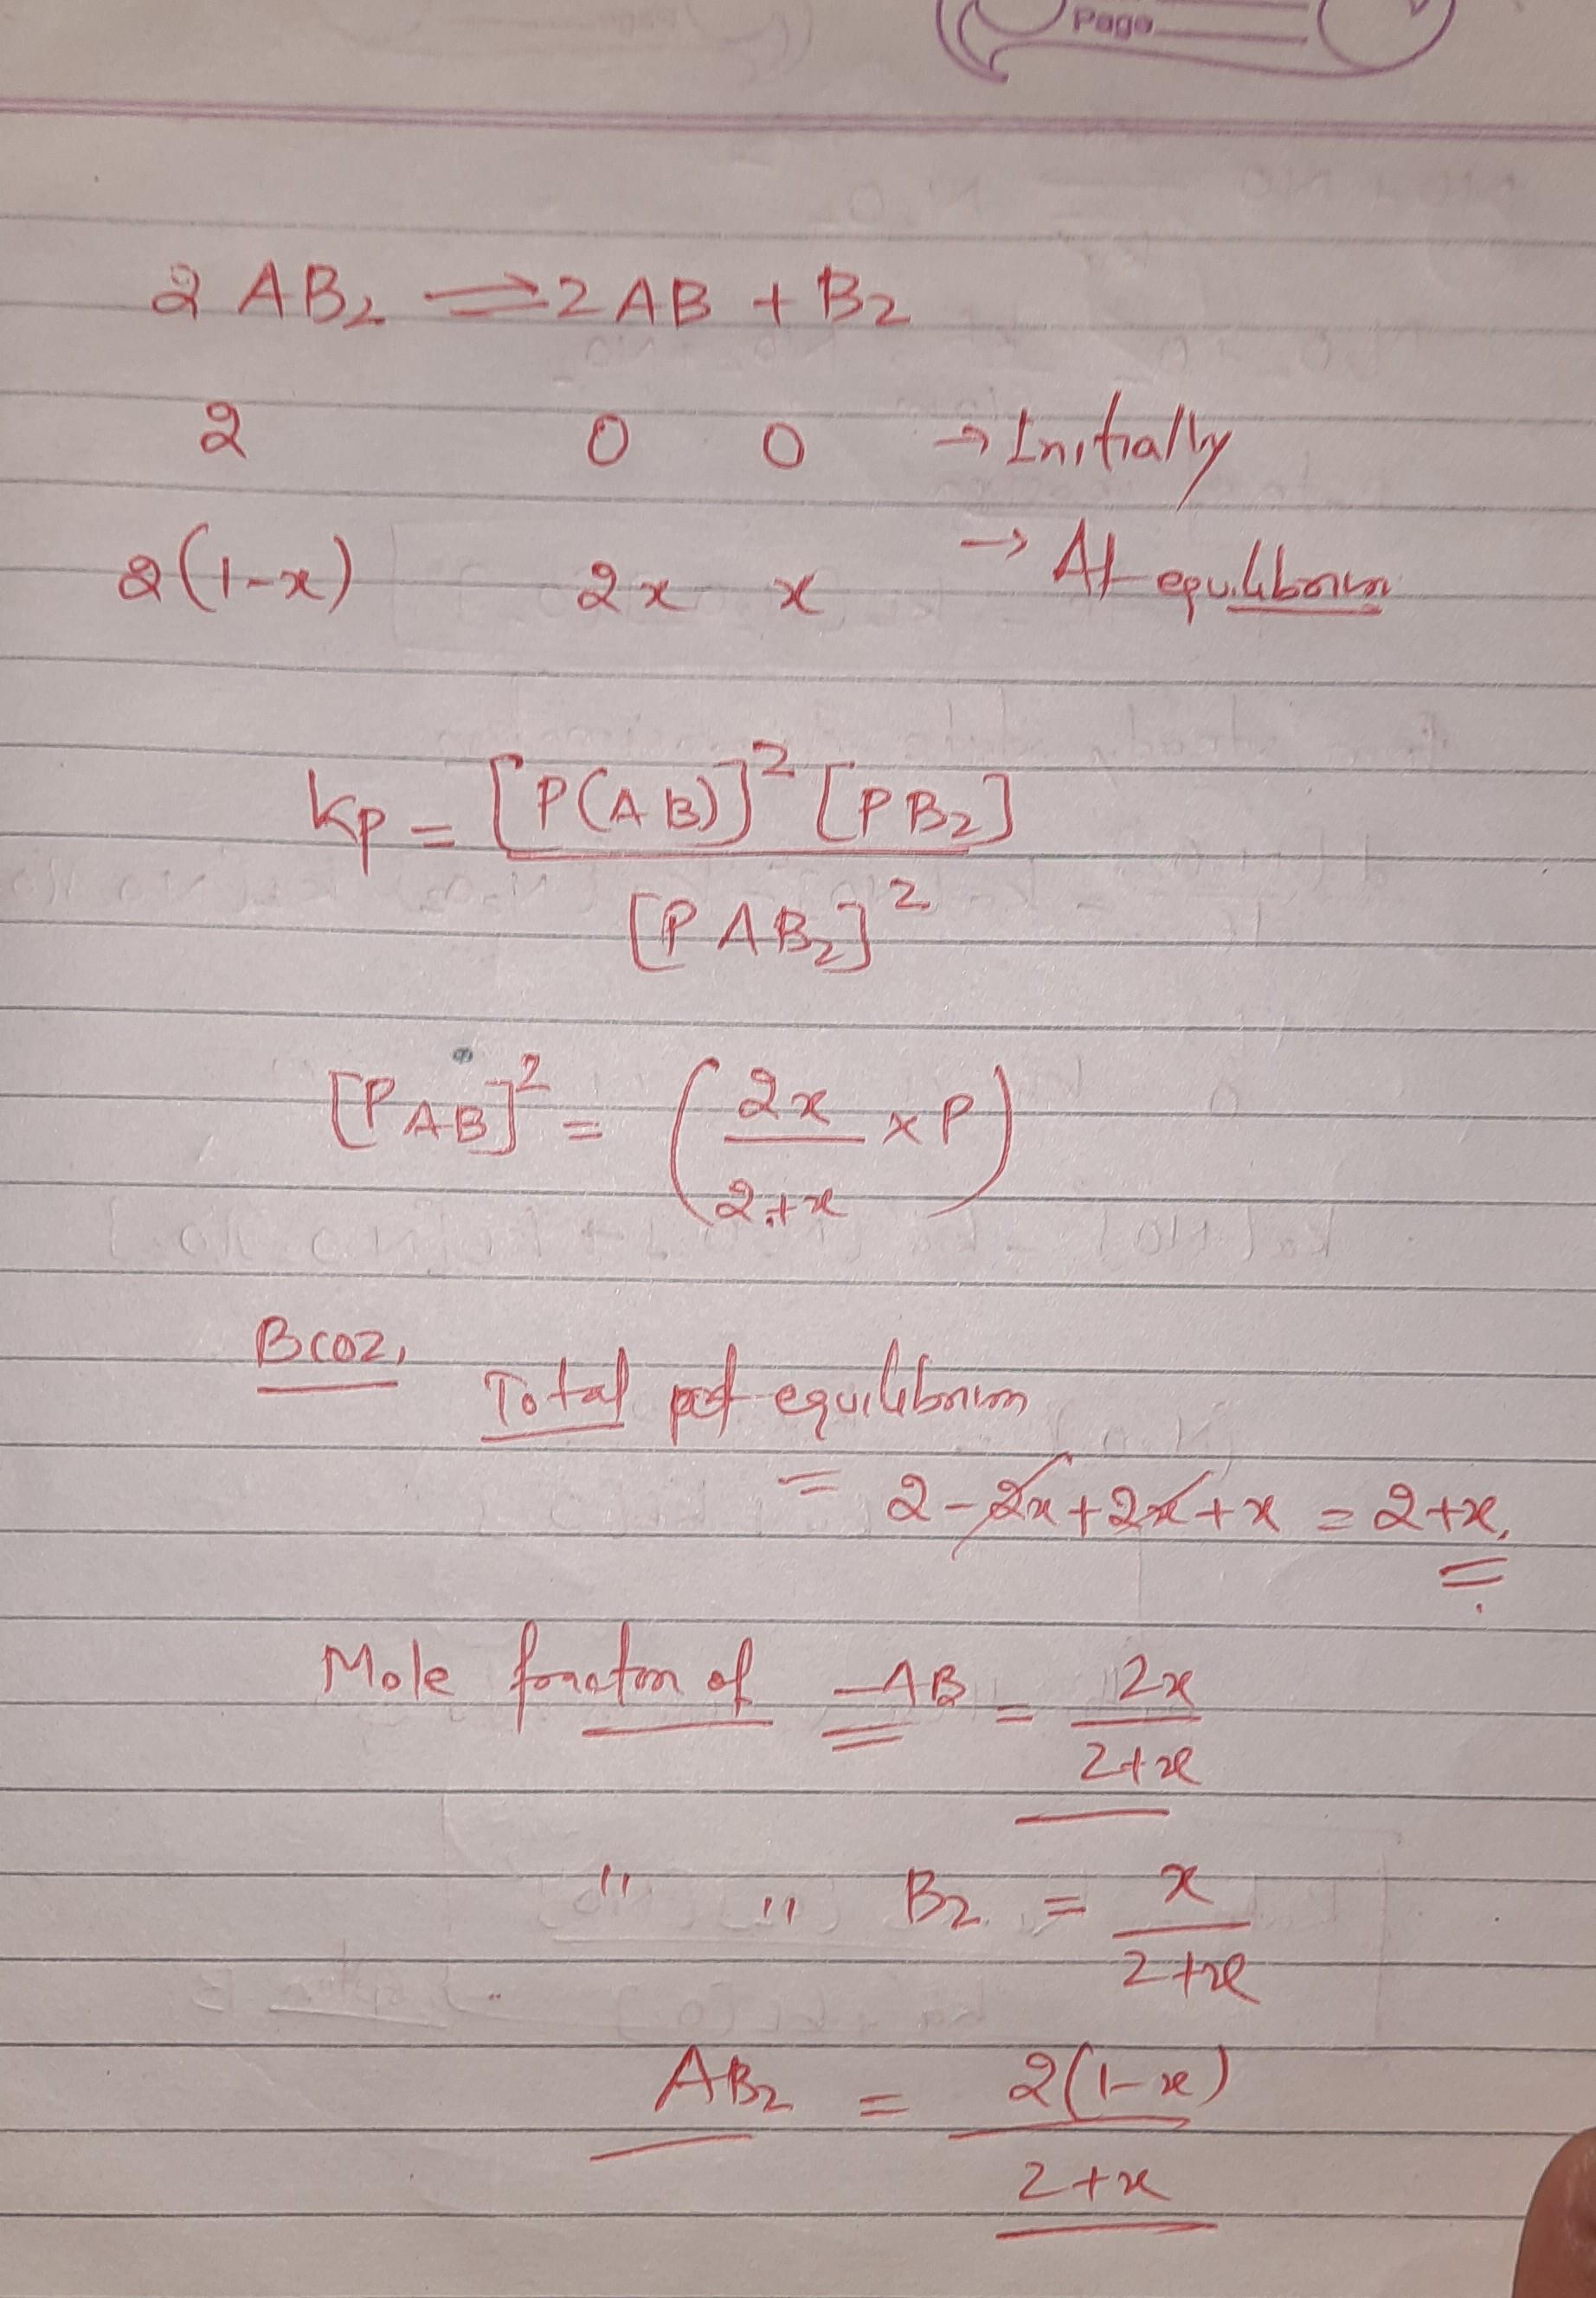 Page
2 AB₂ ⇌ 2AB + B₂
2 0 0 → Initially
2(1-x) 2x x → At equilibrium
Kp = [P(AB)]² [PB₂]
[P AB₂]²
[P AB]² = (2x/2+x × P)
Bcoz,
Total at equilibrium
= 2 - 2x + 2x + x = 2+x,
Mole fraction of AB = 2x/2+x
" " B₂ = x/2+x
AB₂ = 2(1-x)/2+x